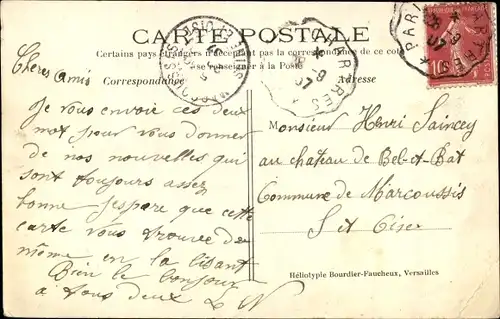 CARTE POSTALE
Certains pays étrangers n'acceptant pas la correspondance de ce coté
se renseigner à la Poste
Correspondance
Adresse
Chères Amis
Je vous envoie ces deux
mot pour vous donner
de nos nouvelles qui
sont toujours assez
bonne J'espare que cette
carte vous trouvera de
même en la lisant
Bien le bonjour
a tous deux L N
Monsieur Henri Saincey
au château de Bel-et-Bat
Commune de Marcoussis
S et Oise
Héliotypie Bourdier-Faucheux, Versailles
PARIS
CHARTRES
10